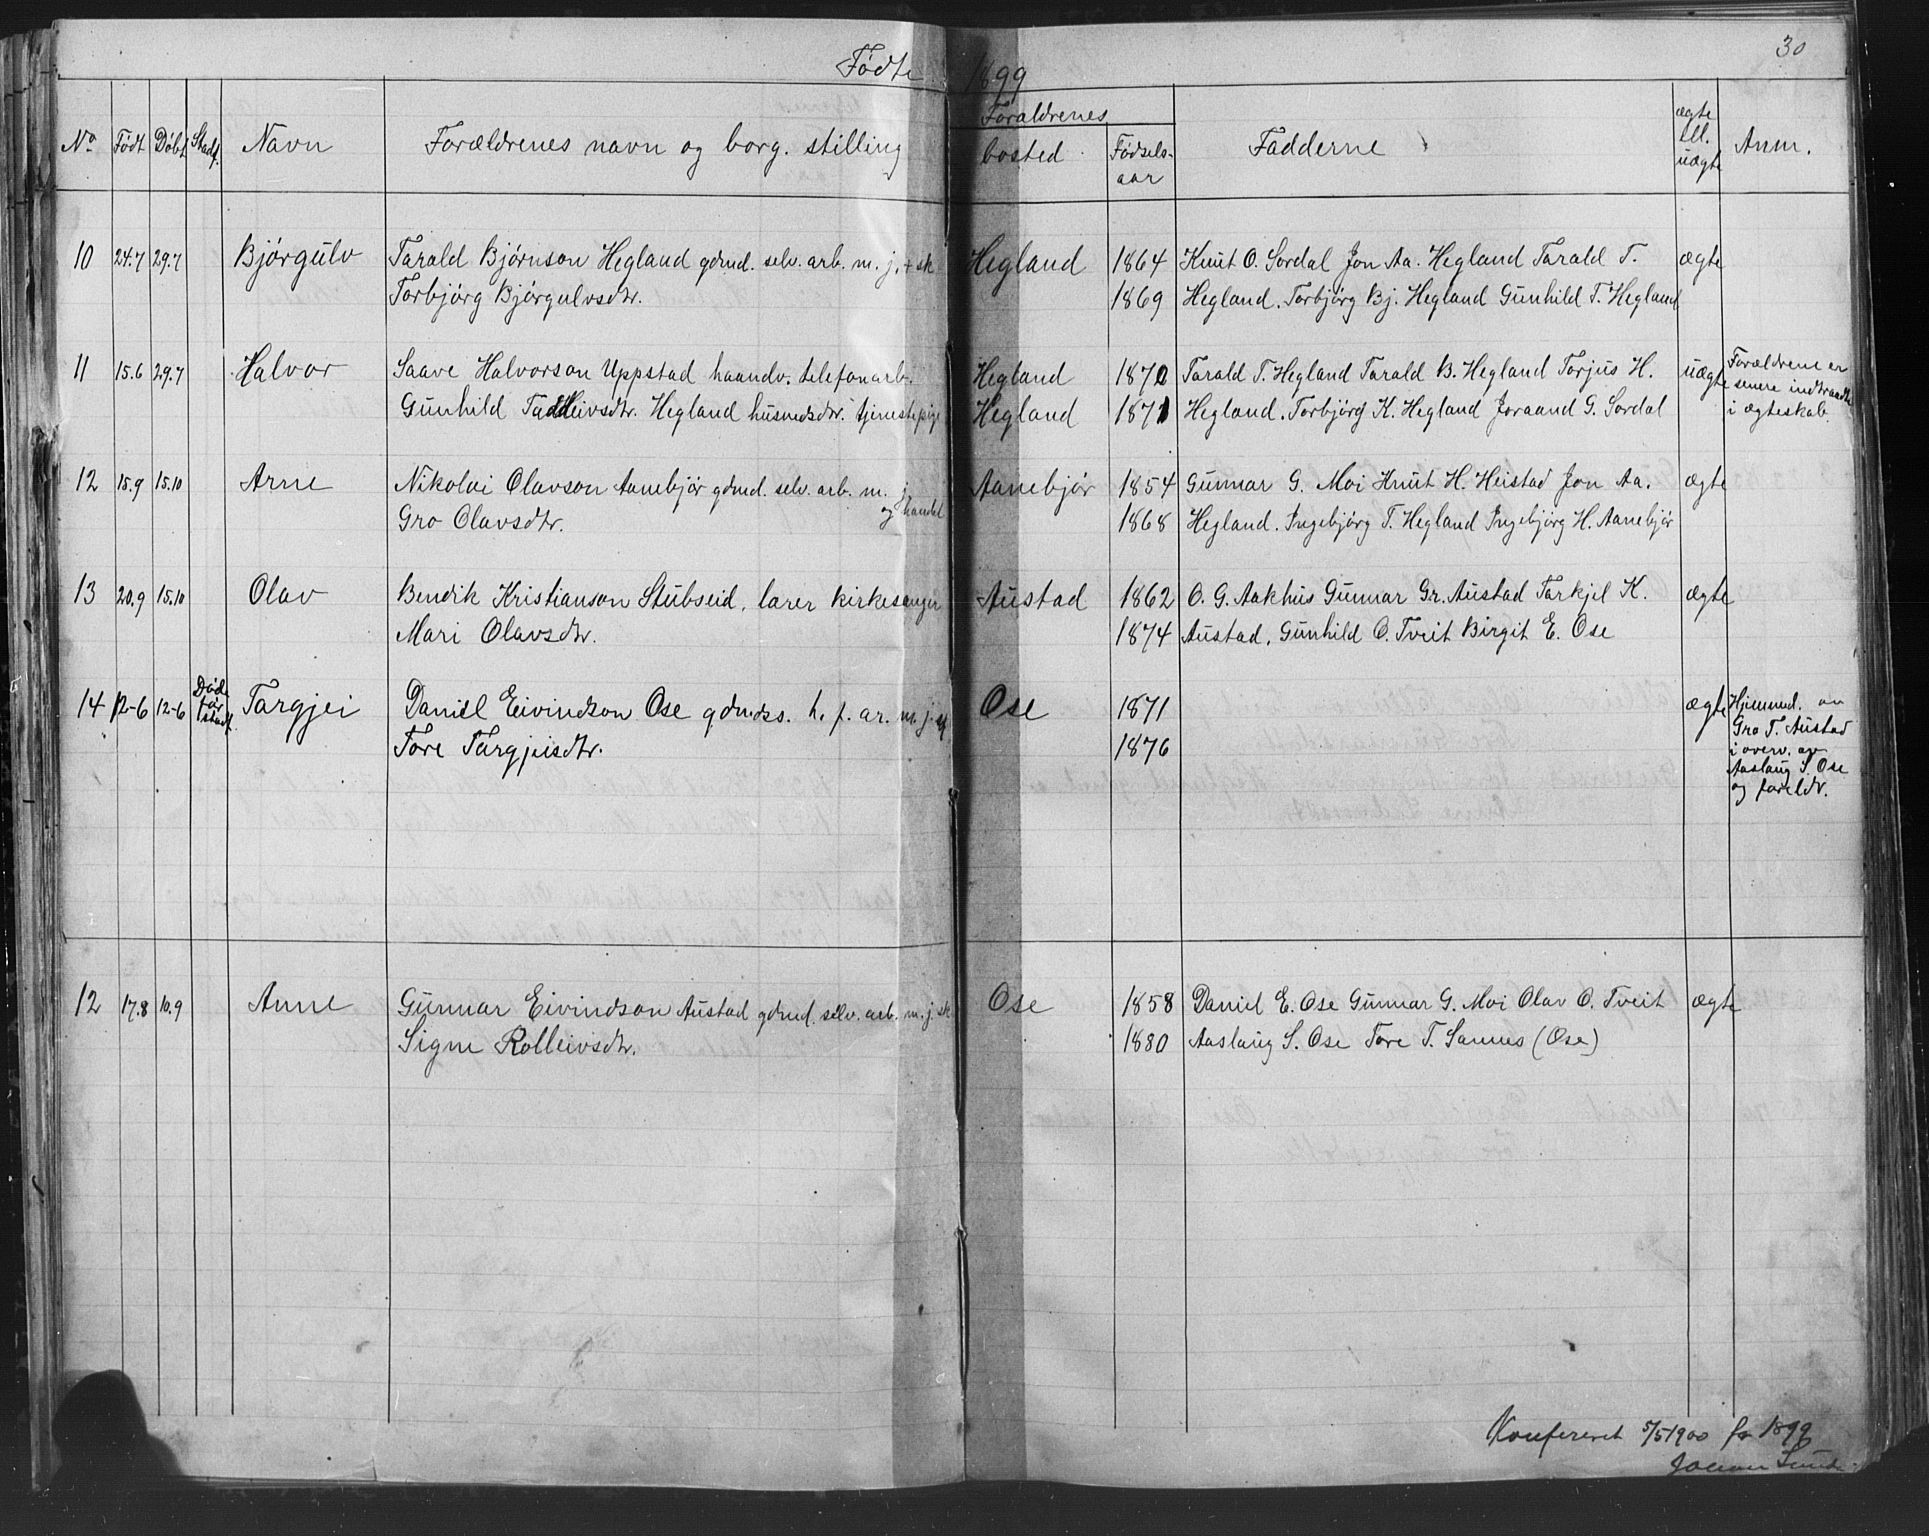 30
Fødte 1899
No Født Døbt Stadf. Navn Forældrenes navn og borg. stilling Forældrenes bosted Fødsels-aar Fadderne ægte ell. uægte Anm.
10 24.7 29.7 Bjørgulv Tarald Bjørnson Hegland gdmd. selv. arb. m. j. + sk Hegland 1864 Knut O. Sordal Jon Aa. Hegland Tarald T. ægte
Torbjørg Bjørgulvsdtr. 1869 Hegland. Torbjørg Bj. Hegland Gunhild T. Hegland
11 15.6 29.7 Halvor Saave Halvorson Uppstad haandv. telefonarb. Hegland 1870 Tarald T. Hegland Tarald B. Hegland Torjus H. uægte Forældrene er
senere indtraadte
Gunhild Taddleivsdtr. Hegland husmdsdtr. tjenestepige Hegland 1871 Hegland. Torbjørg K. Hegland Joraand G. Sordal i ægteskab.
12 15.9 15.10 Arne Nikolai Olavson Aanebjør gdmd. selv. arb. m. j. Aanebjør 1854 Gunnar G. Moi Knut H. Heistad Jon Aa. ægte
og handel
Gro Olavsdtr. 1868 Hegland. Ingebjørg T. Hegland Ingebjørg H. Aanebjør
13 20.9 15.10 Olav Bendik Kristianson Stubseid, lærer kirkesanger Austad 1862 O. G. Aakhus Gunnar Gr. Austad Tarkjel K. ægte
Mari Olavsdtr. 1874 Austad, Gunhild O. Tveit Birgit E. Ose
14 12-6 12-6 Død før stadf. Targjei Daniel Eivindson Ose gdmdss. h. f. ar. m. j. sk Ose 1871 ægte Hjemmed. av
Gro T. Austad
Tore Targjeisdtr. 1876 i overv. av
Aaslaug S. Ose
og foreldr.
12 17.8 10.9 Anne Gunnar Eivindson Austad gdmd. selv. arb. m. j. sk Ose 1858 Daniel E. Ose Gunnar G. Moi Olav O. Tveit ægte
Signe Rolleivsdtr. 1880 Aaslaug S. Ose Tore T. Sannes (Ose)
Konfereret 5/5 1900 for 1899